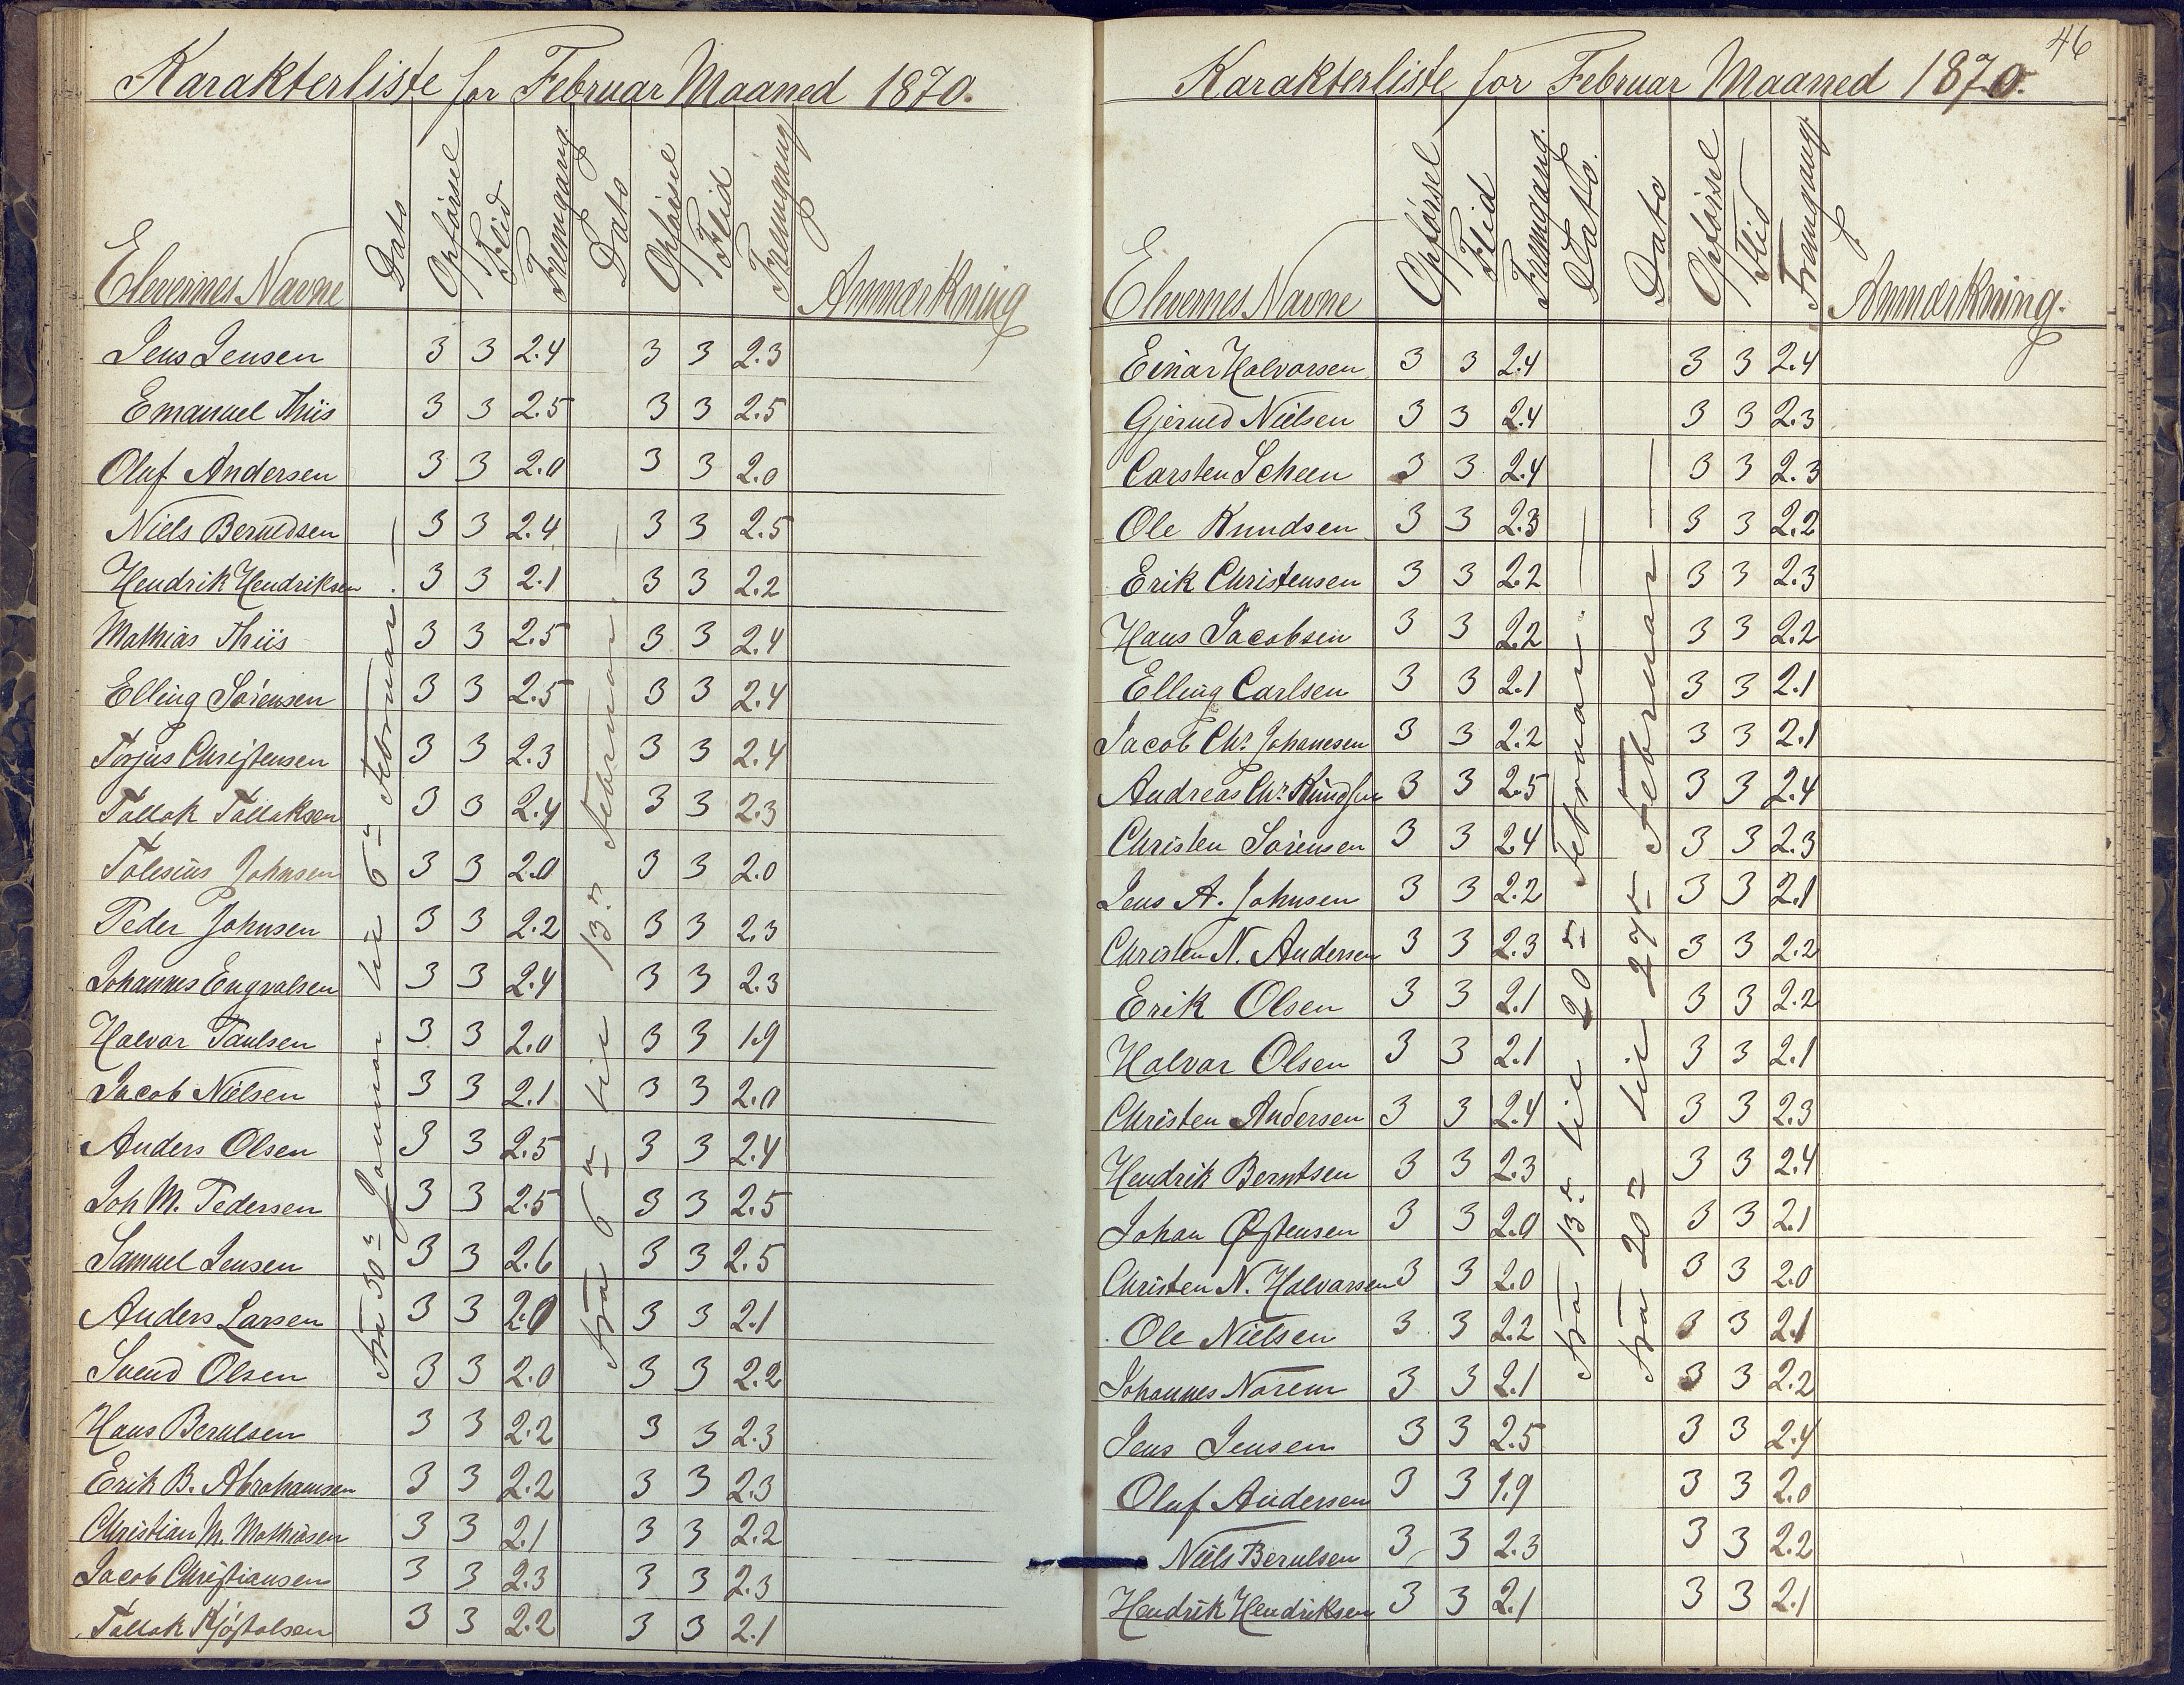 Karakterliste for Februar Maaned 1870.
Elevernes Navne Dato Opførsel Flid Fremgang. Dato Opførsel Flid Fremgang Anmærkning
Fra 30te Januar til 6te Februar.
Fra 6te til 13de Februar.
Jens Jensen 3 3 2.4 3 3 2.3
Emanuel Thiis 3 3 2.5 3 3 2.5
Oluf Andersen 3 3 2.0 3 3 2.0
Niels Berntsen 3 3 2.4 3 3 2.5
Hendrik Hendriksen 3 3 2.1 3 3 2.2
Mathias Thiis 3 3 2.5 3 3 2.4
Elling Sørensen 3 3 2.5 3 3 2.4
Torjus Christensen 3 3 2.3 3 3 2.4
Tallak Tallaksen 3 3 2.4 3 3 2.3
Johnsen 3 3 2.0 3 3 2.0
Peder Johnsen 3 3 2.2 3 3 2.3
Johannes Engvalsen 3 3 2.4 3 3 2.3
Halvor Paulsen 3 3 2.0 3 3 1.9
Jacob Nielsen 3 3 2.1 3 3 2.0
Anders Olsen 3 3 2.5 3 3 2.4
Joh M. Pedersen 3 3 2.5 3 3 2.5
Samuel Jensen 3 3 2.6 3 3 2.5
Anders Larsen 3 3 2.0 3 3 2.1
Svend Olsen 3 3 2.0 3 3 2.2
Hans Berntsen 3 3 2.2 3 3 2.3
Erik B. Abrahamsen 3 3 2.2 3 3 2.3
Christian M. Mathisen 3 3 2.1 3 3 2.2
Jacob Christiansen 3 3 2.3 3 3 2.3
Tallak Kjøstolsen 3 3 2.2 3 3 2.1
46
Karakterliste for Februar Maaned 1870.
Elevernes Navne Opførsel Flid Fremgang. Dato. Dato Opførsel Flid Fremgang Anmærkning.
Fra 13de til 20de Februar.
Fra 20de til 27de Februar
Einar Halvorsen 3 3 2.4 3 3 2.4
Gjerued Nielsen 3 3 2.4 3 3 2.3
Carsten Scheen 3 3 2.4 3 3 2.3
Ole Knudsen 3 3 2.3 3 3 2.2
Erik Christensen 3 3 2.2 3 3 2.3
Hans Jacobsen 3 3 2.2 3 3 2.2
Elling Carlsen 3 3 2.1 3 3 2.1
Jacob Chr. Johanesen 3 3 2.2 3 3 2.1
Andreas Chr. Knudsen 3 3 2.5 3 3 2.4
Christen Sørensen 3 3 2.4 3 3 2.3
Jens A. Johnsen 3 3 2.2 3 3 2.1
Christen N. Andersen 3 3 2.3 3 3 2.2
Erik Olsen 3 3 2.1 3 3 2.2
Halvor Olsen 3 3 2.1 3 3 2.1
Christen Andersen 3 3 2.4 3 3 2.3
Hendrik Berntsen 3 3 2.3 3 3 2.4
Johan Østensen 3 3 2.0 3 3 2.1
Christen N. Halvorsen 3 3 2.0 3 3 2.0
Ole Nielsen 3 3 2.2 3 3 2.1
Johannes Norem 3 3 2.1 3 3 2.2
Jens Jensen 3 3 2.5 3 3 2.4
Oluf Andersen 3 3 1.9 3 3 2.0
Niels Berntsen 3 3 2.3 3 3 2.2
Hendrik Hendriksen 3 3 2.1 3 3 2.1